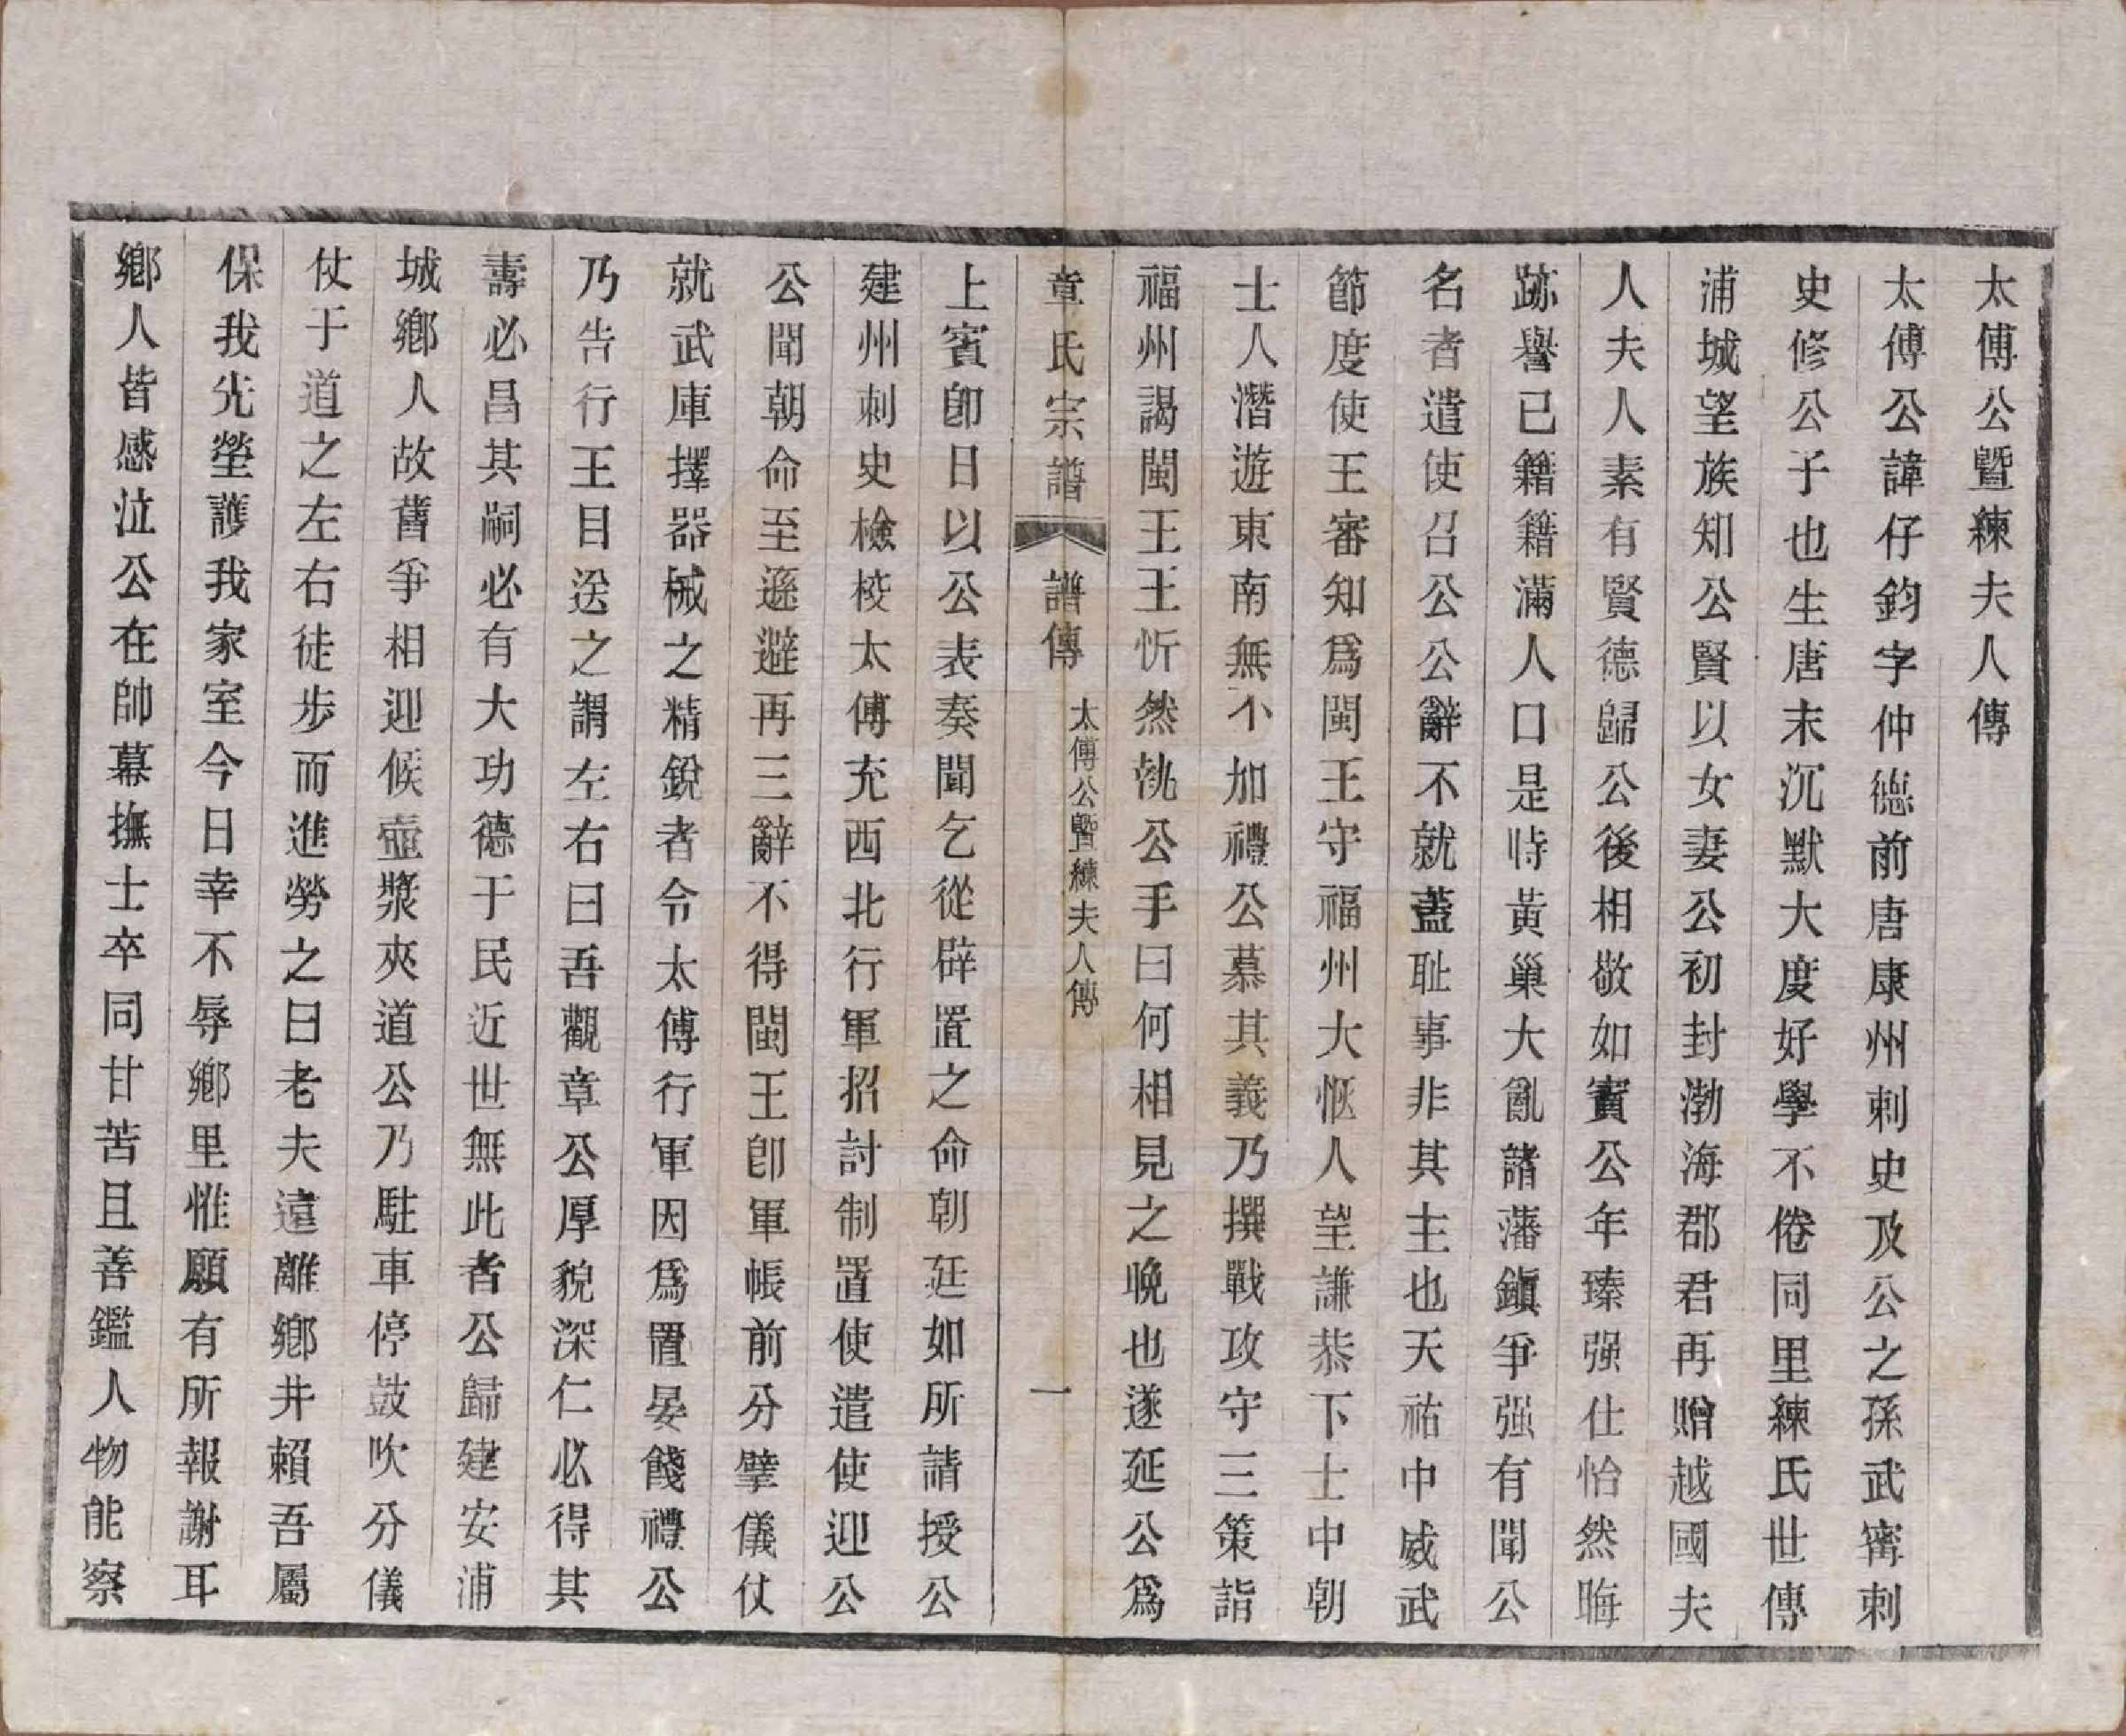 太傅公曁練夫人傳
太傅公諱仔鈞字仲德前唐康州刺史及公之孫武甯刺
史修公子也生唐末沉默大度好學不倦同里練氏世傳
浦城望族知公賢以女妻公初封渤海郡君再贈越國夫
人夫人素有賢德歸公後相敬如賓公年臻强仕怡然晦
跡譽已籍籍滿人口是時黃巢大亂諸藩鎭爭强有聞公
名者遣使召公公辭不就蓋耻事非其主也天祐中威武
節度使王審知爲閩王守福州大惬人望謙恭下士中朝
士人潛遊東南無不加禮公慕其義乃撰戰攻守三策詣
福州謁閩王王忻然執公手曰何相見之晚也遂延公爲
章氏宗譜 譜傳 太傅公曁練夫人傳 一
上賓卽日以公表奏聞乞從辟置之命朝廷如所請授公
建州刺史檢校太傅充西北行軍招討制置使遣使迎公
公聞朝命至遜避再三辭不得閩王卽軍帳前分擘儀仗
就武庫擇器械之精銳者令太傅行軍因爲置宴餞禮公
乃告行王目送之謂左右曰吾觀章公厚貌深仁必得其
壽必昌其嗣必有大功德于民近世無此者公歸建安浦
城鄉人故舊爭相迎候壺漿夾道公乃駐車停鼓吹分儀
仗于道之左右徒步而進勞之曰老夫遠離鄉井賴吾屬
保我先塋護我家室今日幸不辱鄉里惟願有所報謝耳
鄉人皆感泣公在帥幕撫士卒同甘苦且善鑑人物能察